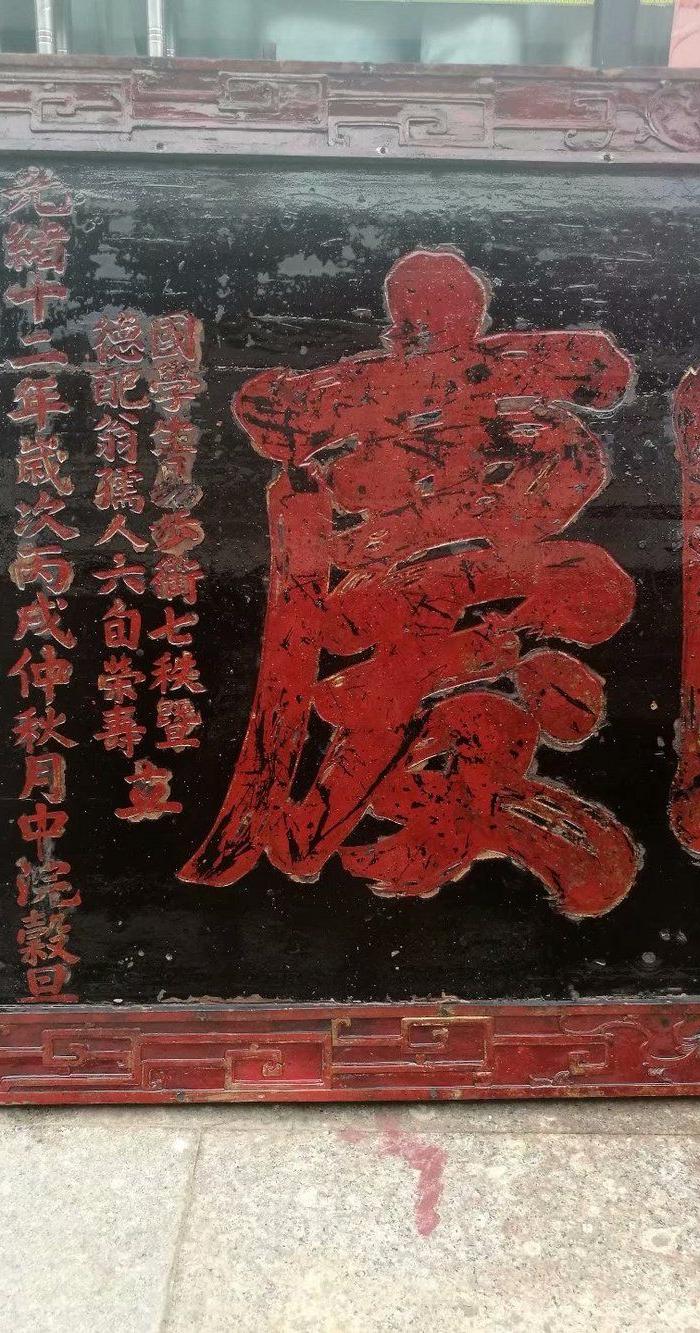 慶
國學生 銜七秩暨
德配翁孺人六旬榮壽
立
光緒十二年歲次丙戌仲秋月中浣穀旦